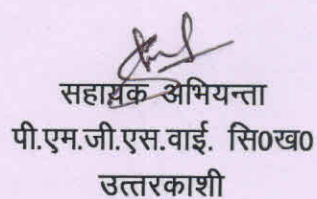 सहायक अभियन्ता
पी.एम.जी.एस.वाई. सि0ख0
उत्तरकाशी